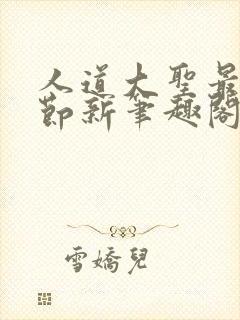 人道大聖最
節新筆趣閣
雪嬌兒